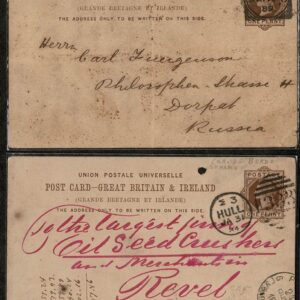 (GRANDE BRETAGNE ET IRLANDE)
THE ADDRESS ONLY TO BE WRITTEN ON THIS SIDE.
89
ONE PENNY
Herrn
Carl Juergenson
Philosophen-Strasse
Dorpat
Russia
UNION POSTALE UNIVERSELLE
POST CARD–GREAT BRITAIN & IRELAND
(GRANDE BRETAGNE ET IRLANDE)
THE ADDRESS ONLY TO BE WRITTEN ON THIS SIDE.
POSTAGE
HULL
To the largest
Oil Seed Crushers
and Merchants in
Revel